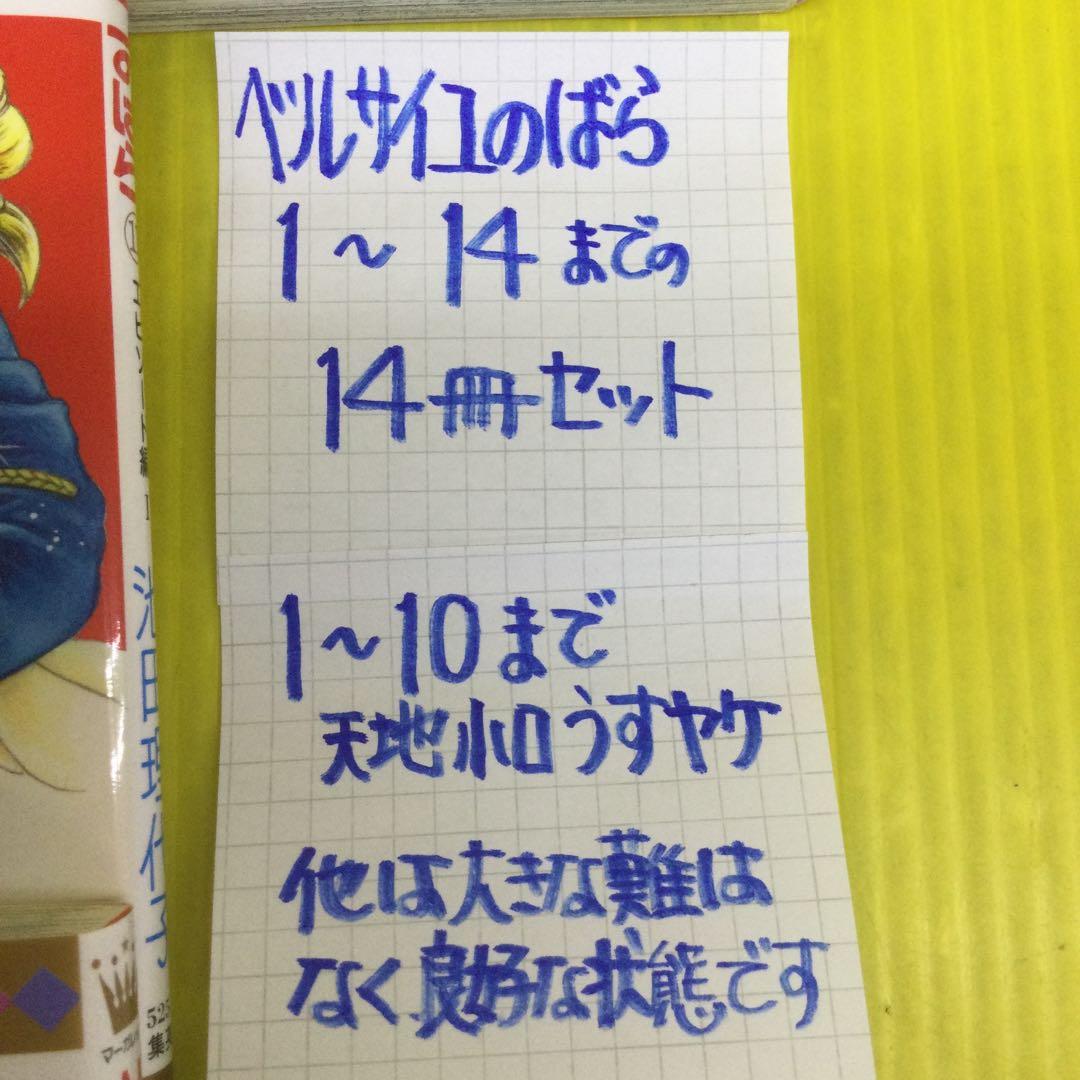 ベルサイユのばら
1〜14までの
14冊セット
1〜10まで
天地小口うすヤケ
他は大きな難は
なく良好な状態です
池田理代子
525
集英
マーガレ